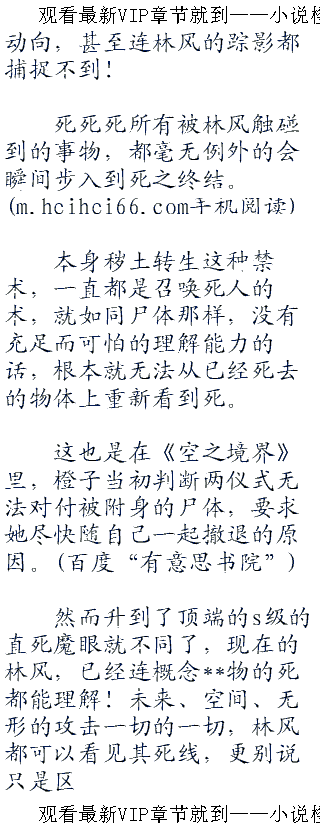 观看最新VIP章节就到——小说检
动向，甚至连林风的踪影都
捕捉不到！
死死死所有被林风触碰
到的事物，都毫无例外的会
瞬间步入到死之终结。
(m.hcihci66.com手机阅读)
本身秽土转生这种禁
术，一直都是召唤死人的
术，就如同尸体那样，没有
充足而可怕的理解能力的
话，根本就无法从已经死去
的物体上重新看到死。
这也是在《空之境界》
里，橙子当初判断两仪式无
法对付被附身的尸体，要求
她尽快随自己一起撤退的原
因。(百度“有意思书院”)
然而升到了顶端的s级的
直死魔眼就不同了，现在的
林风，已经连概念**物的死
都能理解！未来、空间、无
形的攻击一切的一切，林风
都可以看见其死线，更别说
只是区
观看最新VIP章节就到——小说检